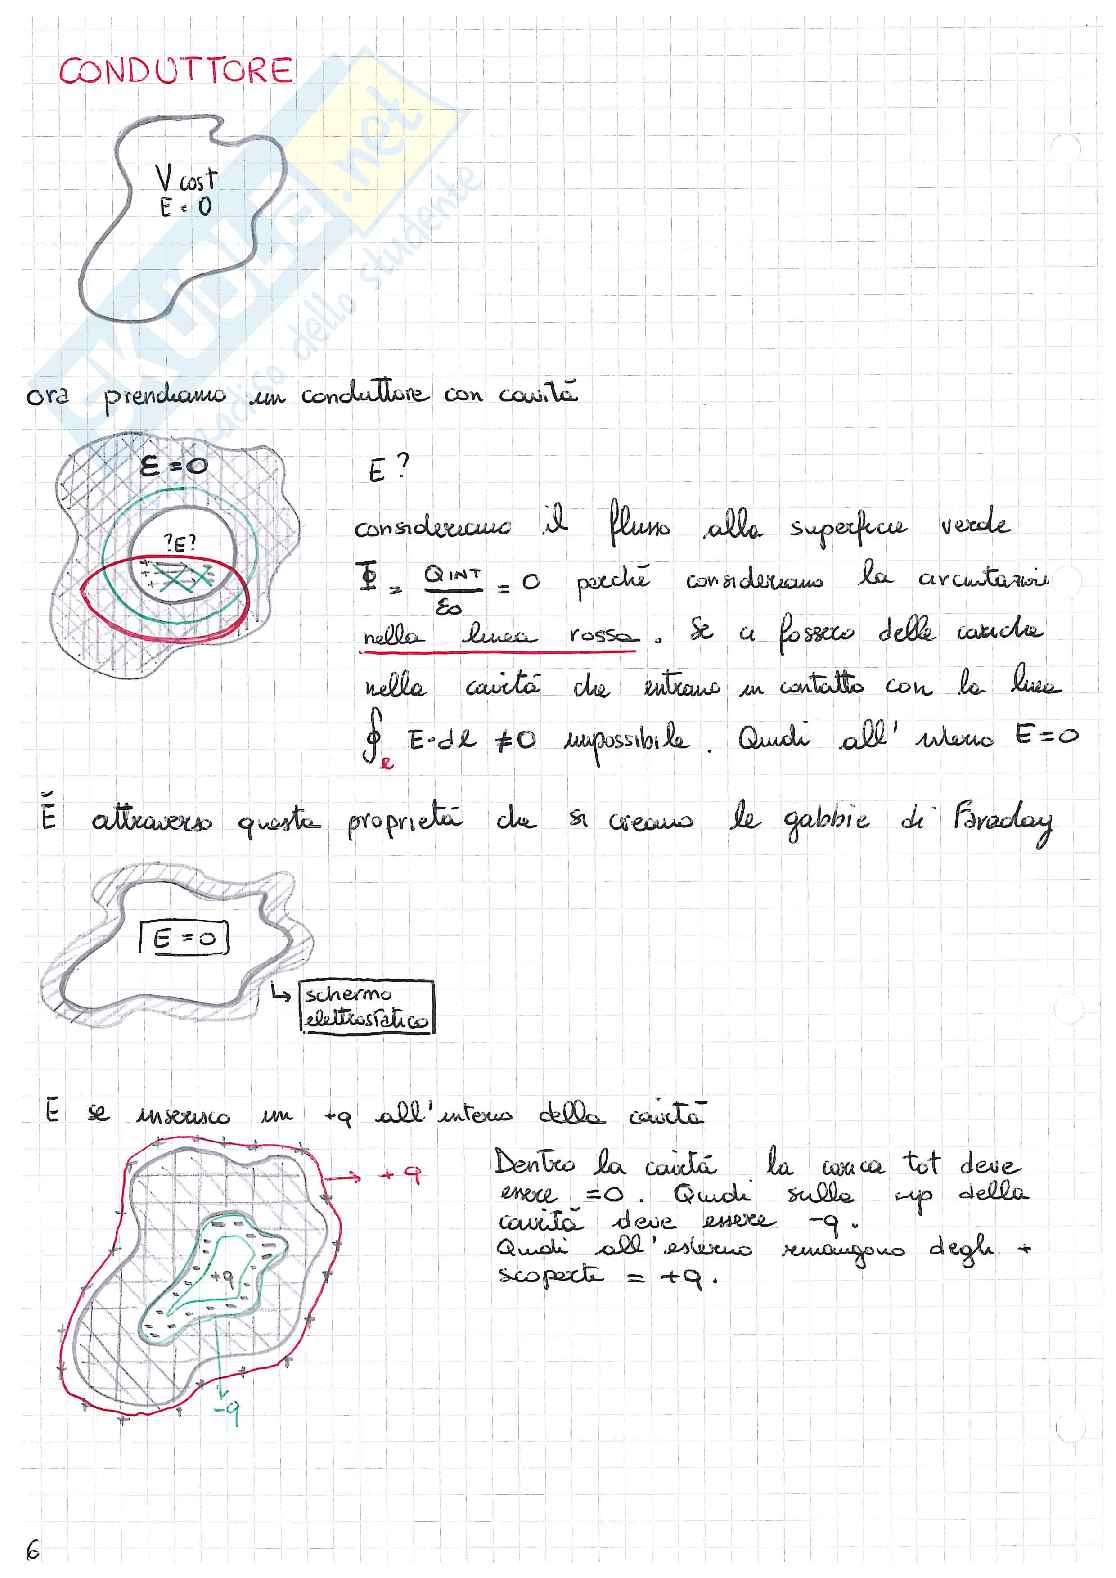 CONDUTTORE
V cost
E = 0
ora prendiamo un conduttore con cavità
E = 0
?E?
E ?
consideriamo il flusso alla superficie verde
Φ = QINT / ε0 = 0 perché consideriamo la circuitazione
nella linea rossa. Se ci fossero delle cariche
nella cavità che entrano in contatto con la linea
∮ℓ E·dl ≠ 0 impossibile. Quindi all'interno E = 0
È attraverso questa proprietà che si creano le gabbie di Faraday
E = 0
schermo
elettrostatico
E se inserisco un +q all'interno della cavità
+q
Dentro la cavità la carica tot deve
essere =0. Quindi sulla sup della
cavità deve essere -q.
Quindi all'esterno rimangono degli +
scoperti = +q.
+q
-q
6
SKUOLA.net
paradiso dello studente